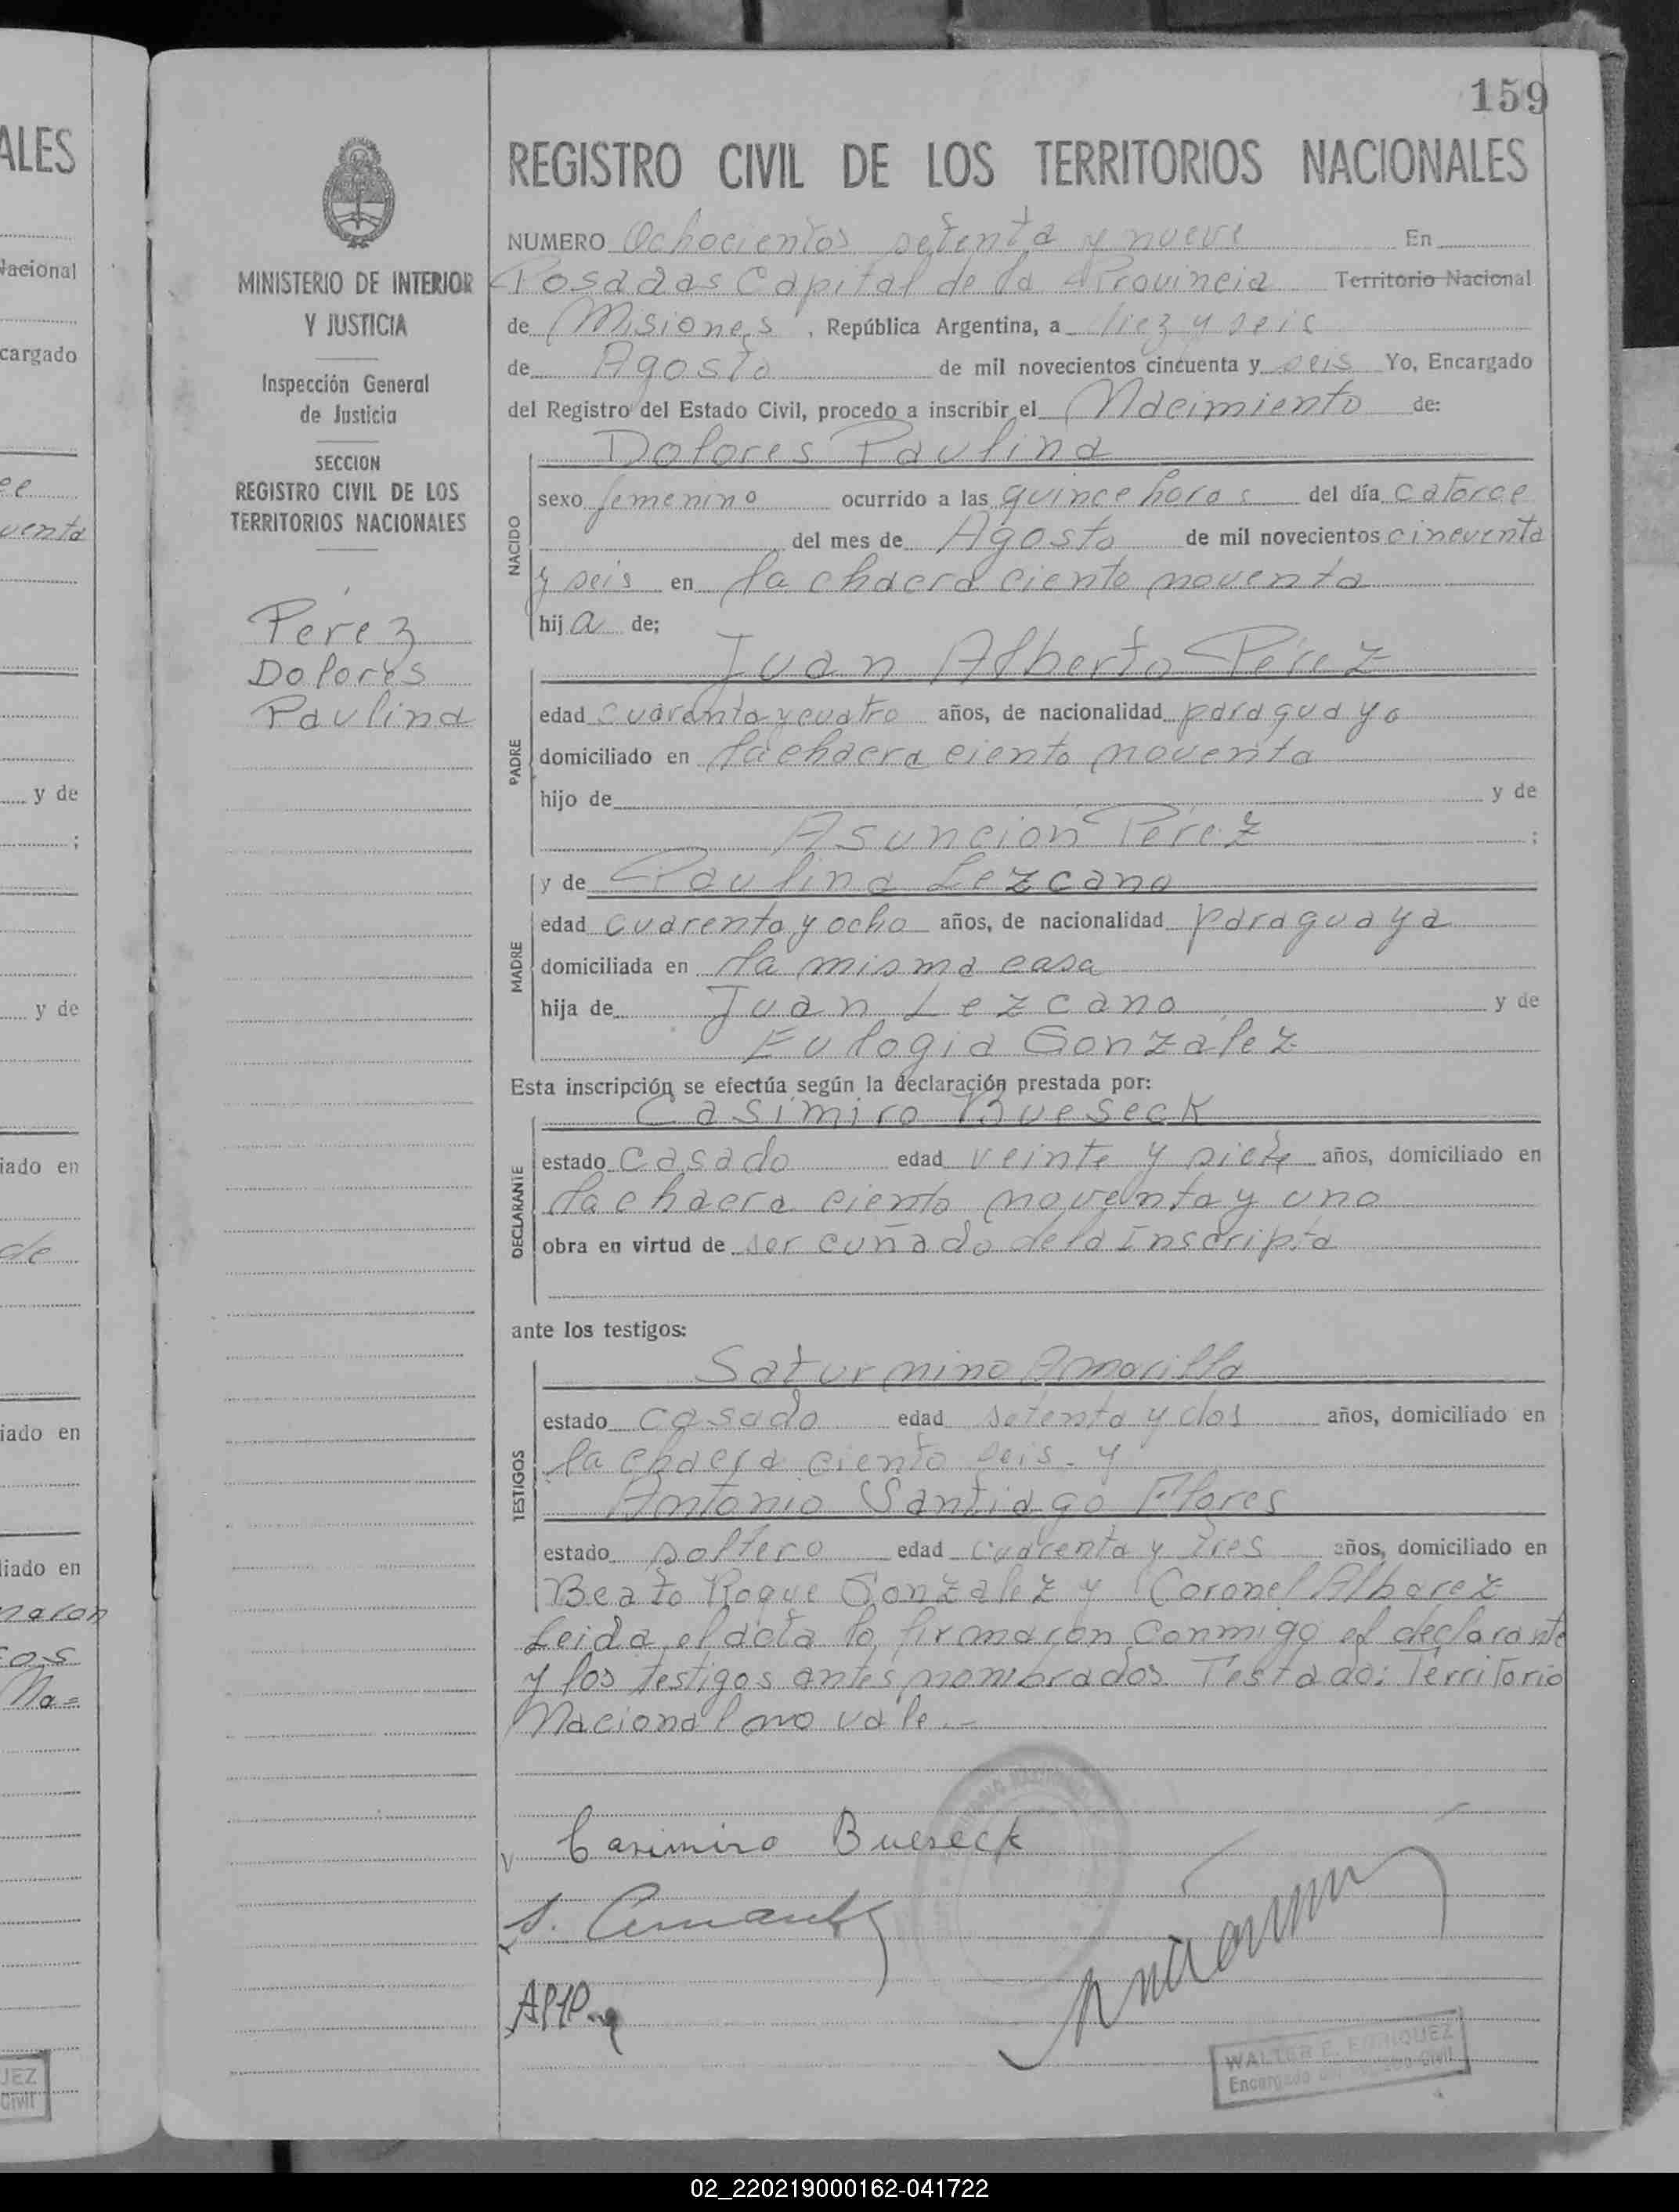 ALES
Nacional
cargado
ee
uenta
y de
;
y de
iado en
de
iado en
liado en
maron
tos
Na=
UEZ
Civil
159
MINISTERIO DE INTERIOR
Y JUSTICIA
Inspección General
de Justicia
SECCION
REGISTRO CIVIL DE LOS
TERRITORIOS NACIONALES
Pérez
Dolores
Paulina
REGISTRO CIVIL DE LOS TERRITORIOS NACIONALES
NUMERO Ochocientos setenta y nueve En
Posadas Capital de la Provincia Territorio Nacional
de Misiones, República Argentina, a diez y seis
de Agosto de mil novecientos cincuenta y seis Yo, Encargado
del Registro del Estado Civil, procedo a inscribir el Nacimiento de:
Dolores Paulina
NACIDO
sexo femenino ocurrido a las quince horas del día catorce
del mes de Agosto de mil novecientos cincuenta
y seis en la chacra ciento noventa
hij a de;
Juan Alberto Pérez
PADRE
edad cuarenta y cuatro años, de nacionalidad paraguayo
domiciliado en la chacra ciento noventa
hijo de y de
Asunción Pérez ;
y de Paulina Lezcano
MADRE
edad cuarenta y ocho años, de nacionalidad paraguaya
domiciliada en la misma casa
hija de Juan Lezcano y de
Eulogia Gonzalez
Esta inscripción se efectúa según la declaración prestada por:
Casimiro Bueseck
DECLARANTE
estado casado edad veinte y siete años, domiciliado en
la chacra ciento noventa y uno
obra en virtud de ser cuñado de la Inscripta
ante los testigos:
Saturnino Amarilla
TESTIGOS
estado casado edad setenta y dos años, domiciliado en
la chacra ciento seis. y
Antonio Santiago Flores
estado soltero edad cuarenta y tres años, domiciliado en
Beato Roque Gonzalez y Coronel Albarez
Leida el acta la firmaron conmigo el declarante
y los testigos antes nombrados. Testado: Territorio
Nacional no vale.-
Casimiro Bueseck
WALTER E. ENRIQUEZ
Encargado del Registro Civil
02_220219000162-041722